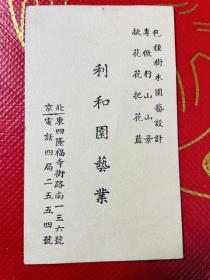 包種樹木園藝設計
專做竹山山景
鮮花花把花蓝
利和園藝業
北京東四隆福寺街路南一三六號
電話四局二五五四號